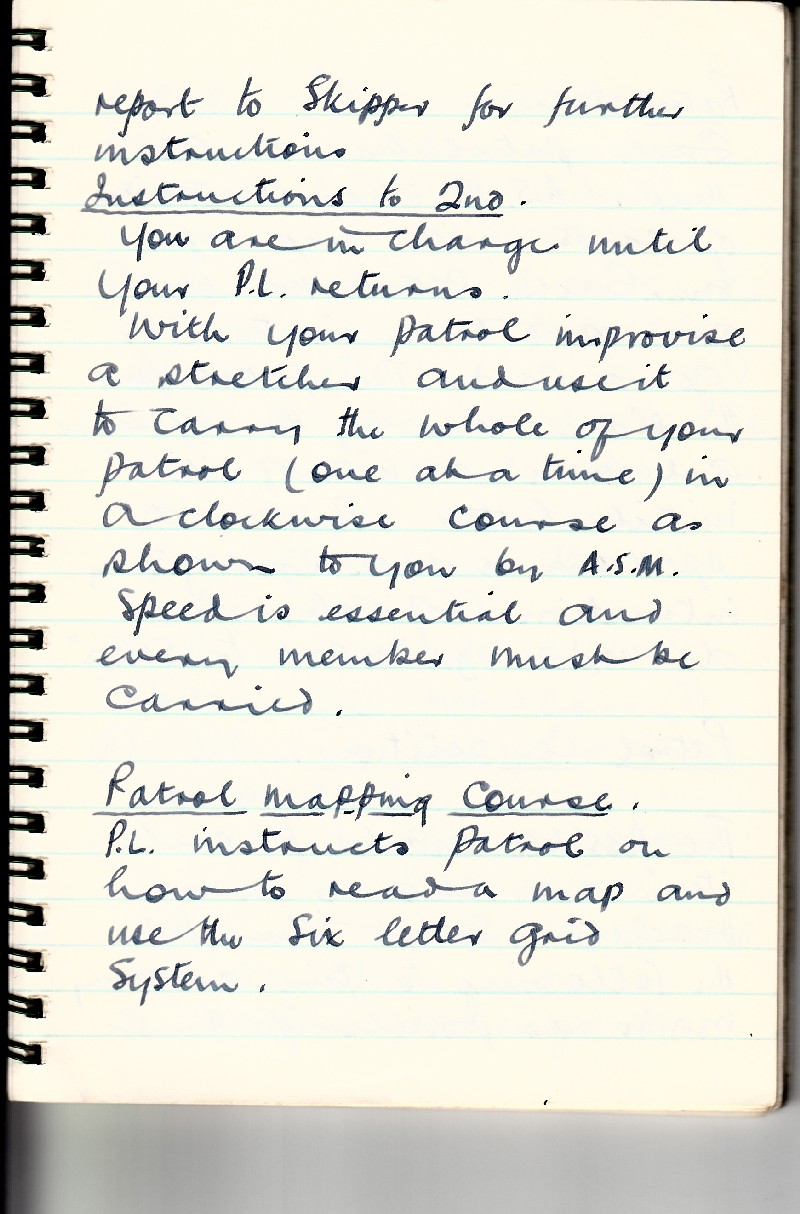 report to Skipper for further
instructions
Instructions to 2nd.
You are in charge until
your P.L. returns.
With your patrol improvise
a stretcher and use it
to carry the whole of your
patrol (one at a time) in
a clockwise course as
shown to you by A.S.M.
Speed is essential and
every member must be
carried.
Patrol mapping Course.
P.L. instructs patrol on
how to read a map and
use the Six letter grid
System.